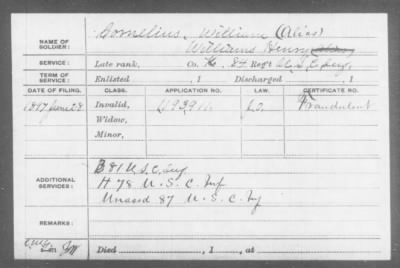 Cornelius, William (Alias)
NAME OF SOLDIER: Williams Henry
SERVICE: Late rank, Co. K. 84 Reg't U.S.C. Inf.
TERM OF SERVICE: Enlisted , 1 Discharged , 1
DATE OF FILING. CLASS. APPLICATION NO. LAW. CERTIFICATE NO.
1897 Invalid, Fraudulent
Widow,
Minor,
B 81 U.S.C. Inf
ADDITIONAL SERVICES: H 78 U. S. C. Inf
Unassd 87 U. S. C. Inf
REMARKS:
Died , 1 , at